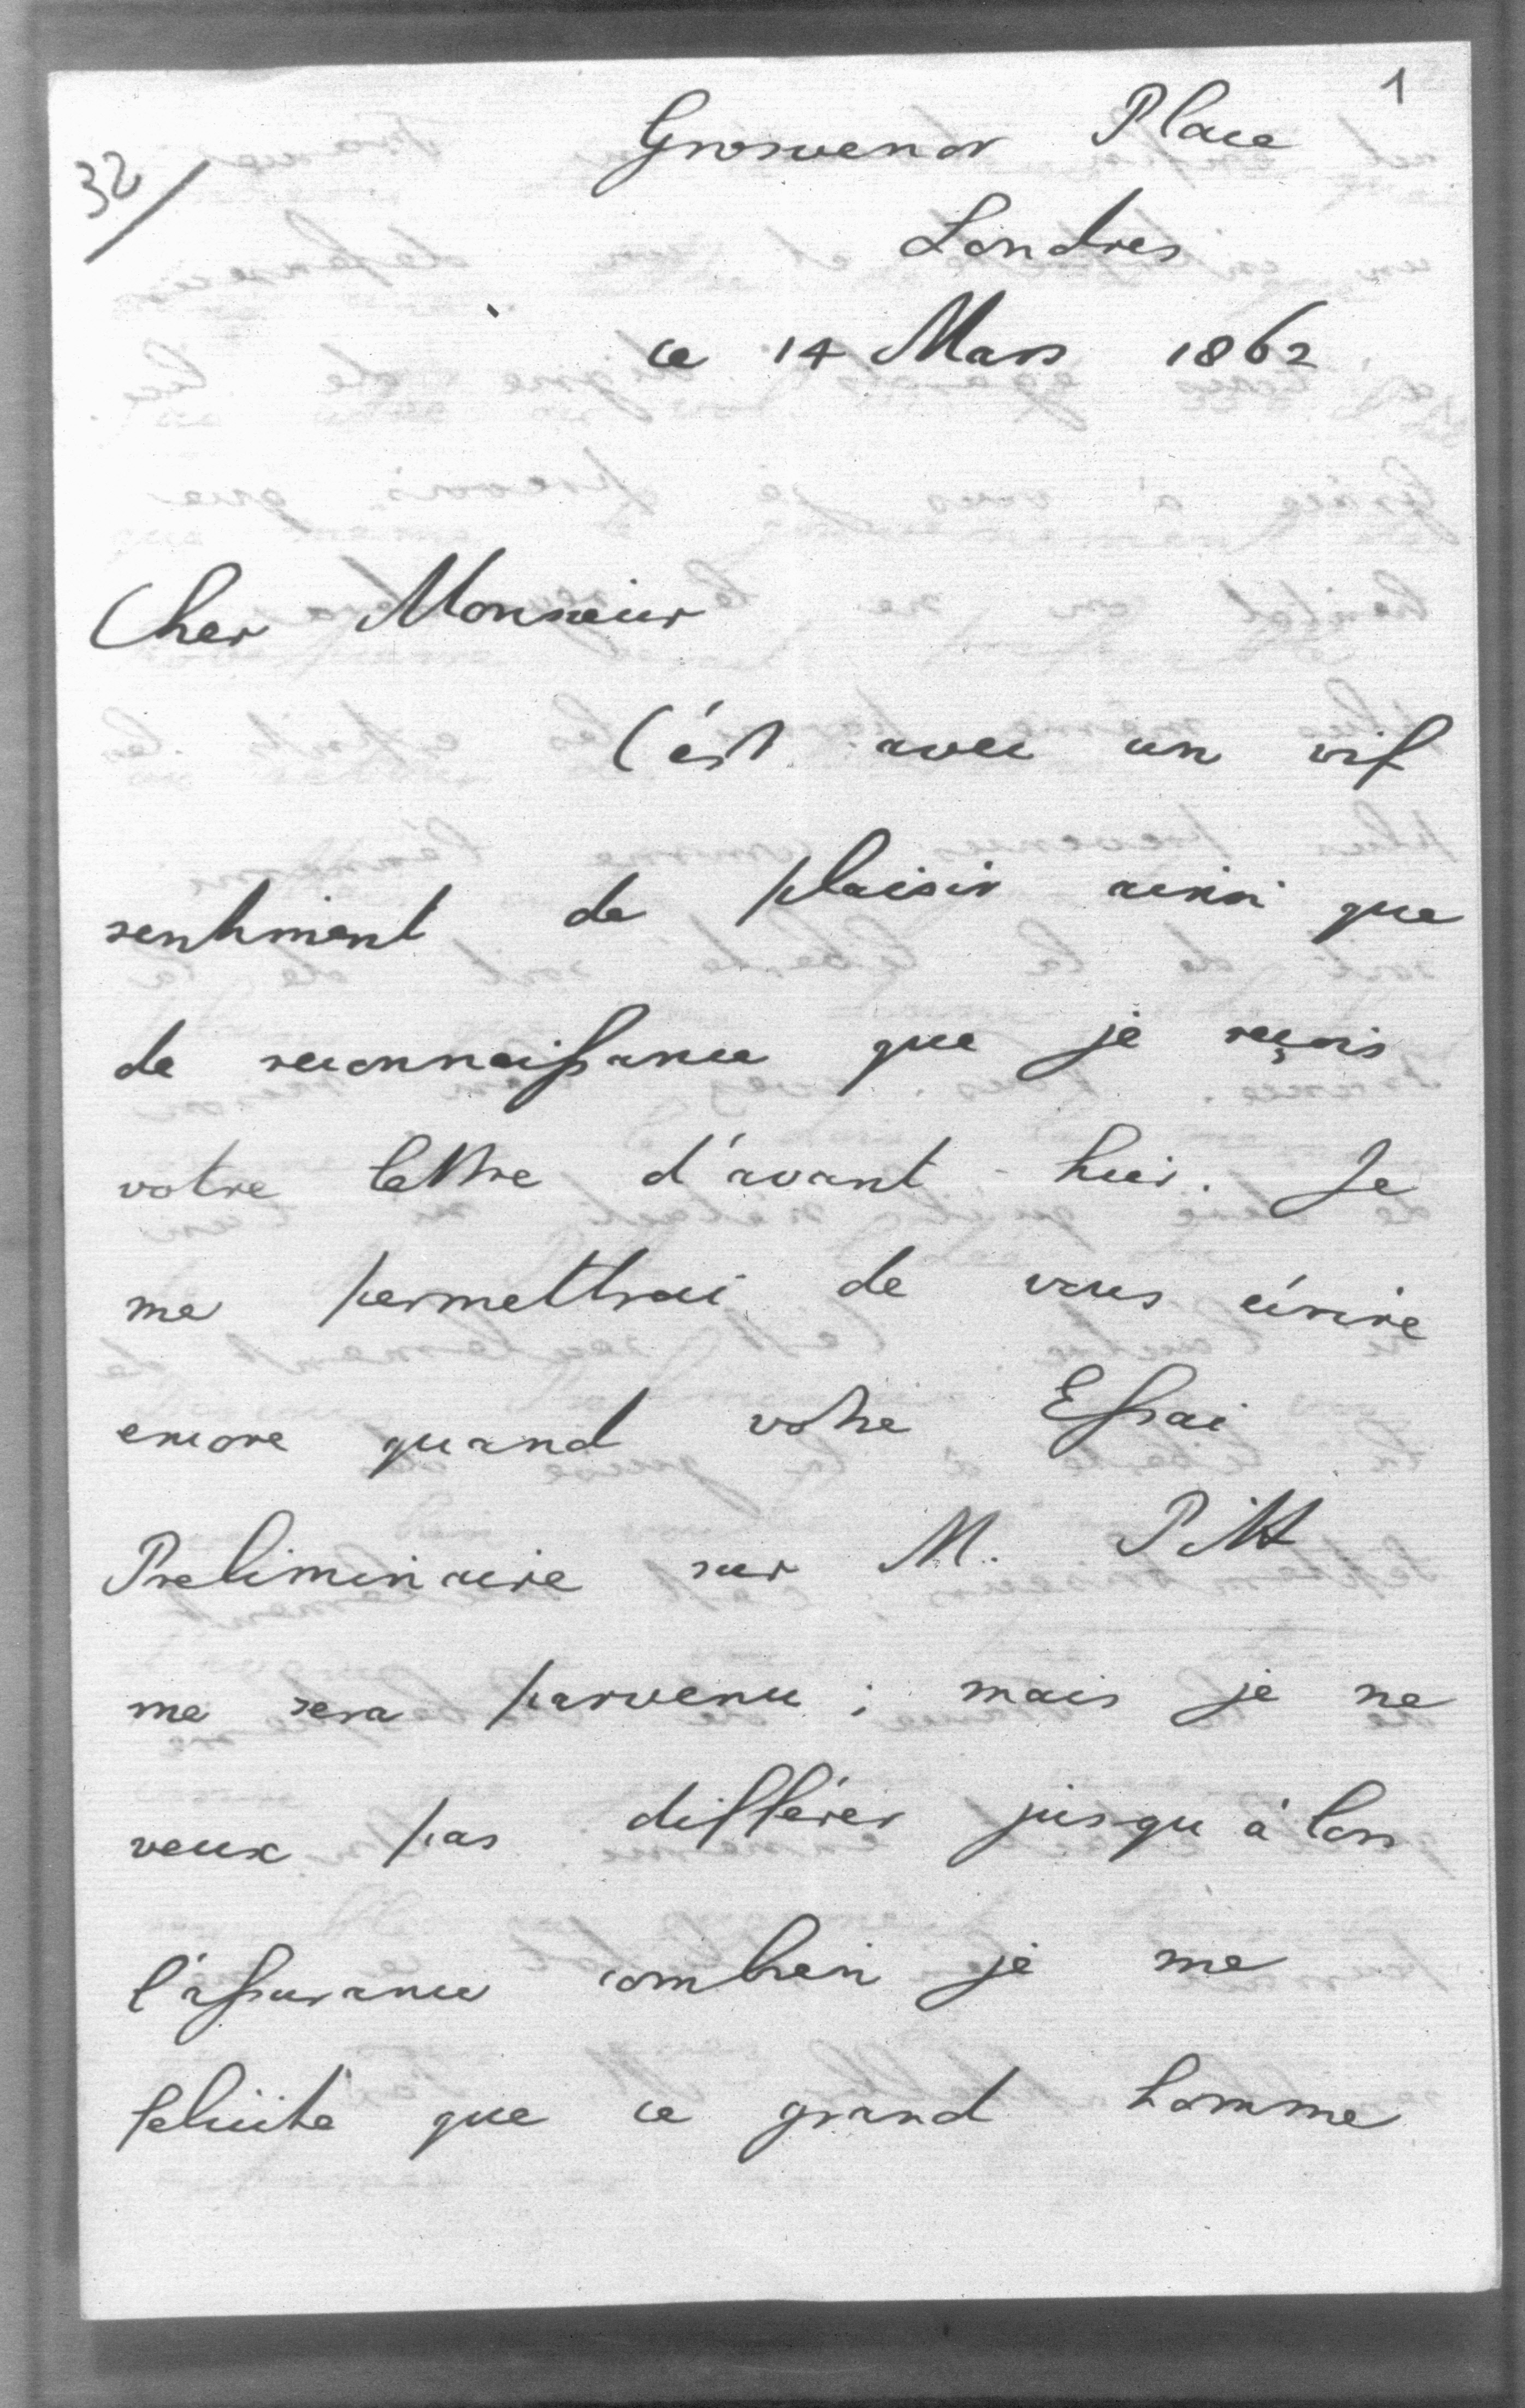 1
32
Grosvenor Place
Londres
ce 14 Mars 1862
Cher Monsieur
C'est avec un vif
sentiment de plaisir ainsi que
de reconnaissance que je reçois
votre lettre d'avant-hier. Je
me permettrai de vous écrire
encore quand votre Essai
Preliminaire sur M. Pitt
me sera parvenu ; mais je ne
veux pas différer jusqu'à lors
l'assurance combien je me
félicite que ce grand homme